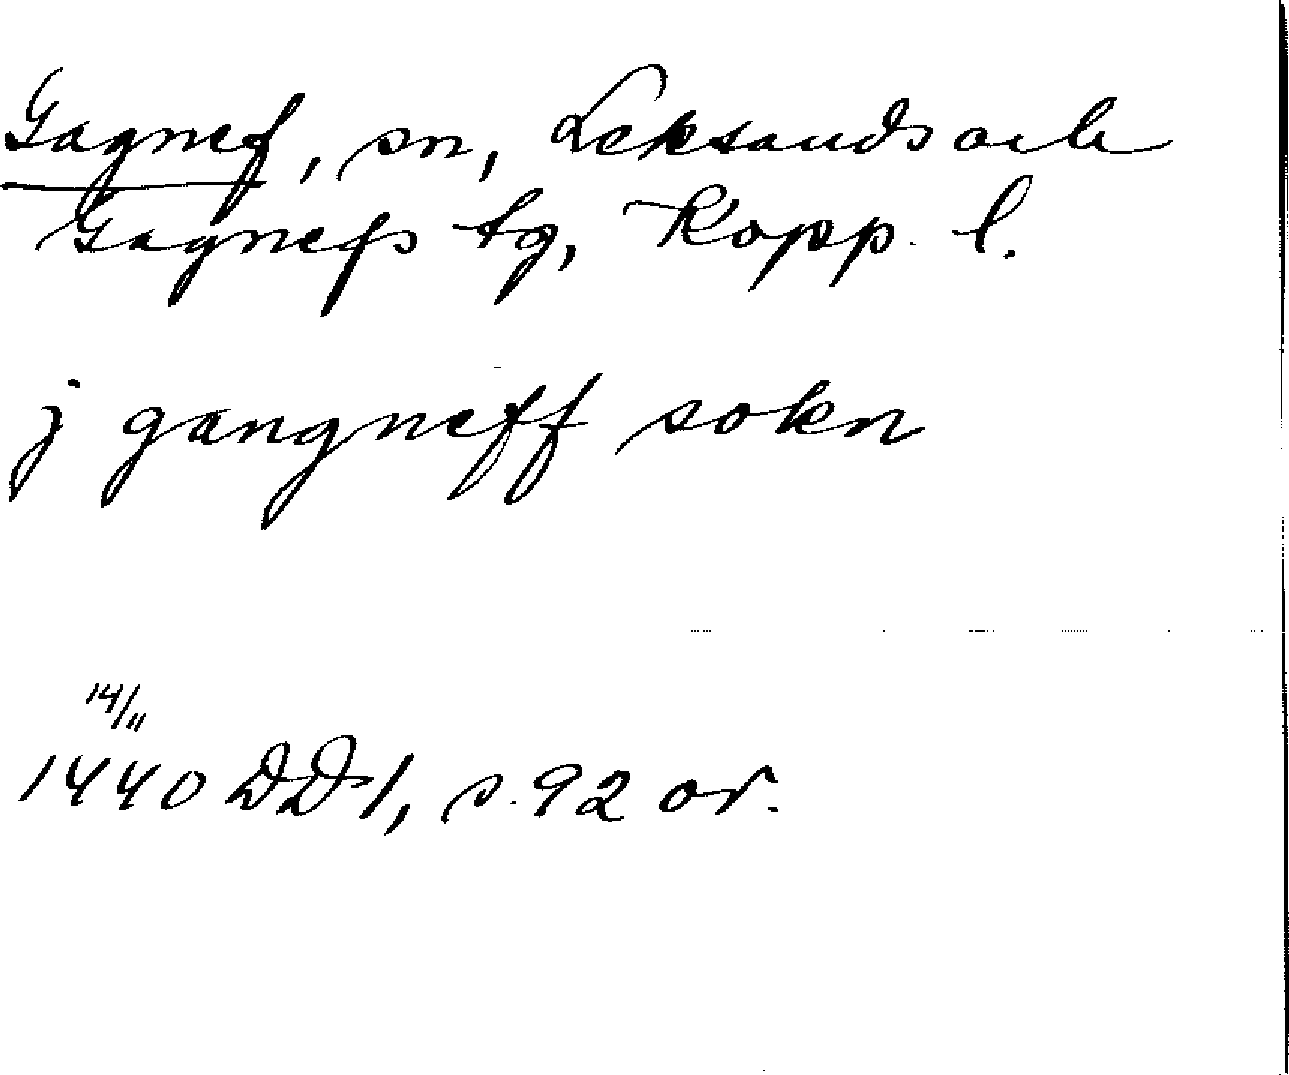 Gagnef, sn, Leksands och
Gagnefs tg, Kopp. l.
j gangneff sokn
14/11
1440 DD 1, s. 92 or.